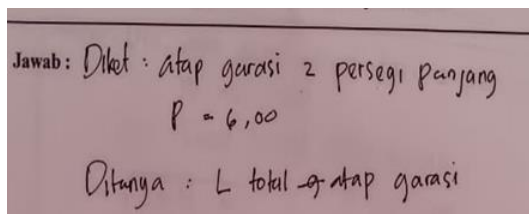 Jawab: Diket : atap garasi 2 persegi panjang
P = 6,00
Ditanya : L total atap garasi